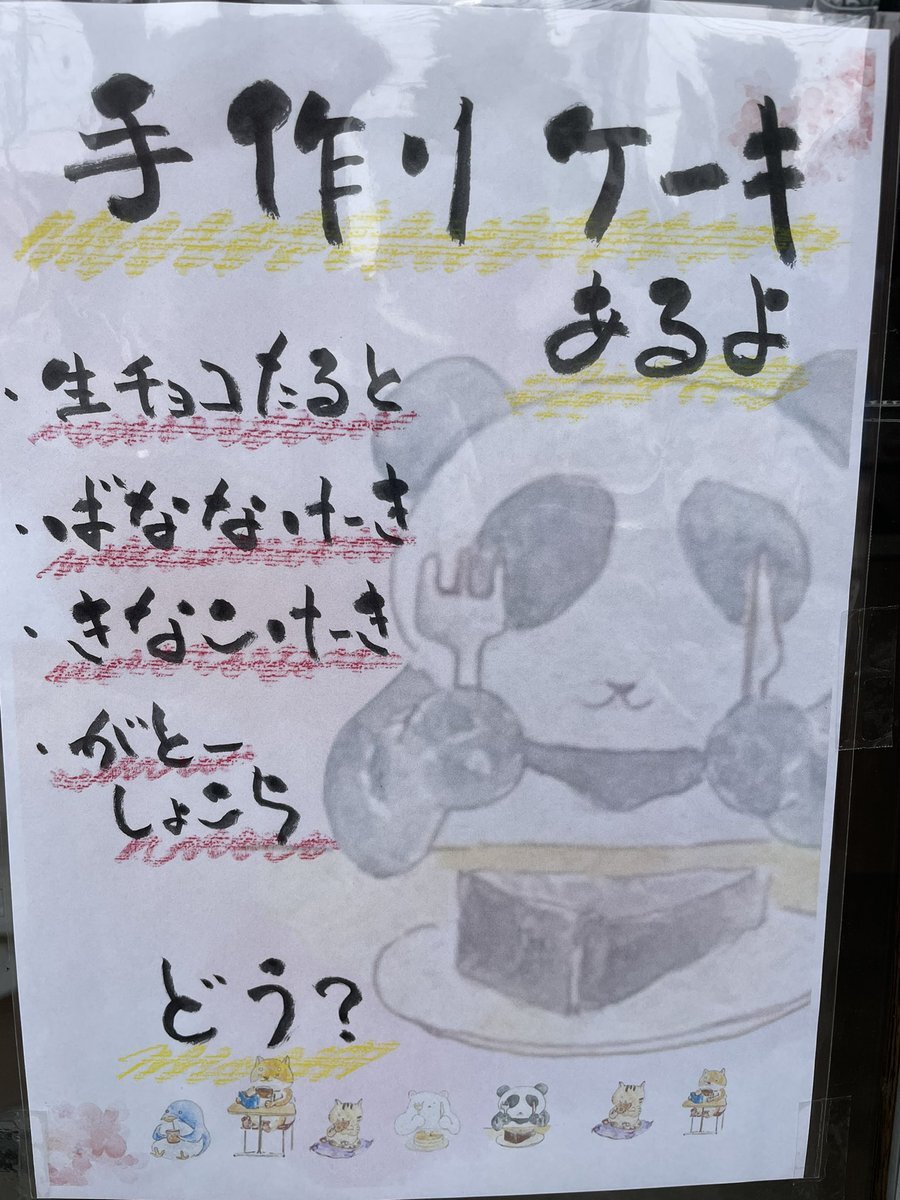 手作りケーキ
あるよ
・生チョコたると
・ばななけーき
・きなこけーき
・がとー
しょこら
どう?